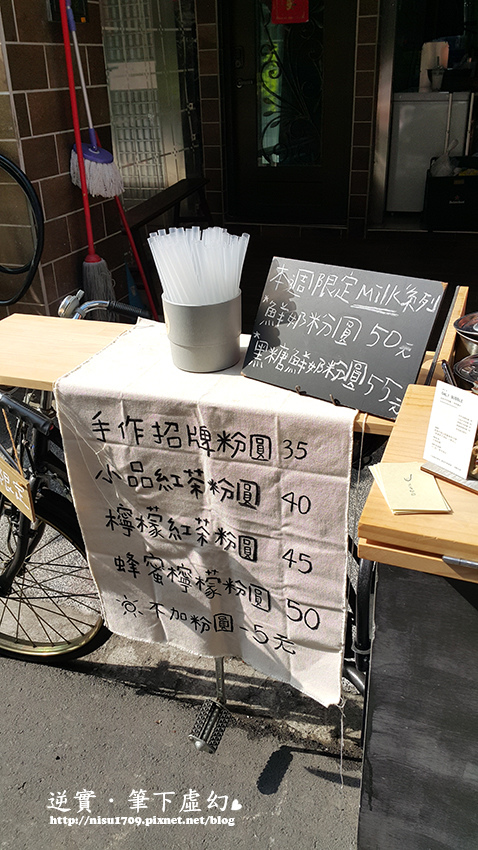 本週限定Milk系列
*鮮奶粉圓 50元
*黑糖鮮奶粉圓 55元
手作招牌粉圓 35
小品紅茶粉圓 40
檸檬紅茶粉圓 45
蜂蜜檸檬粉圓 50
※不加粉圓 -5元
限定
逆實·筆下虛幻
http://nisu1709.pixnet.net/blog